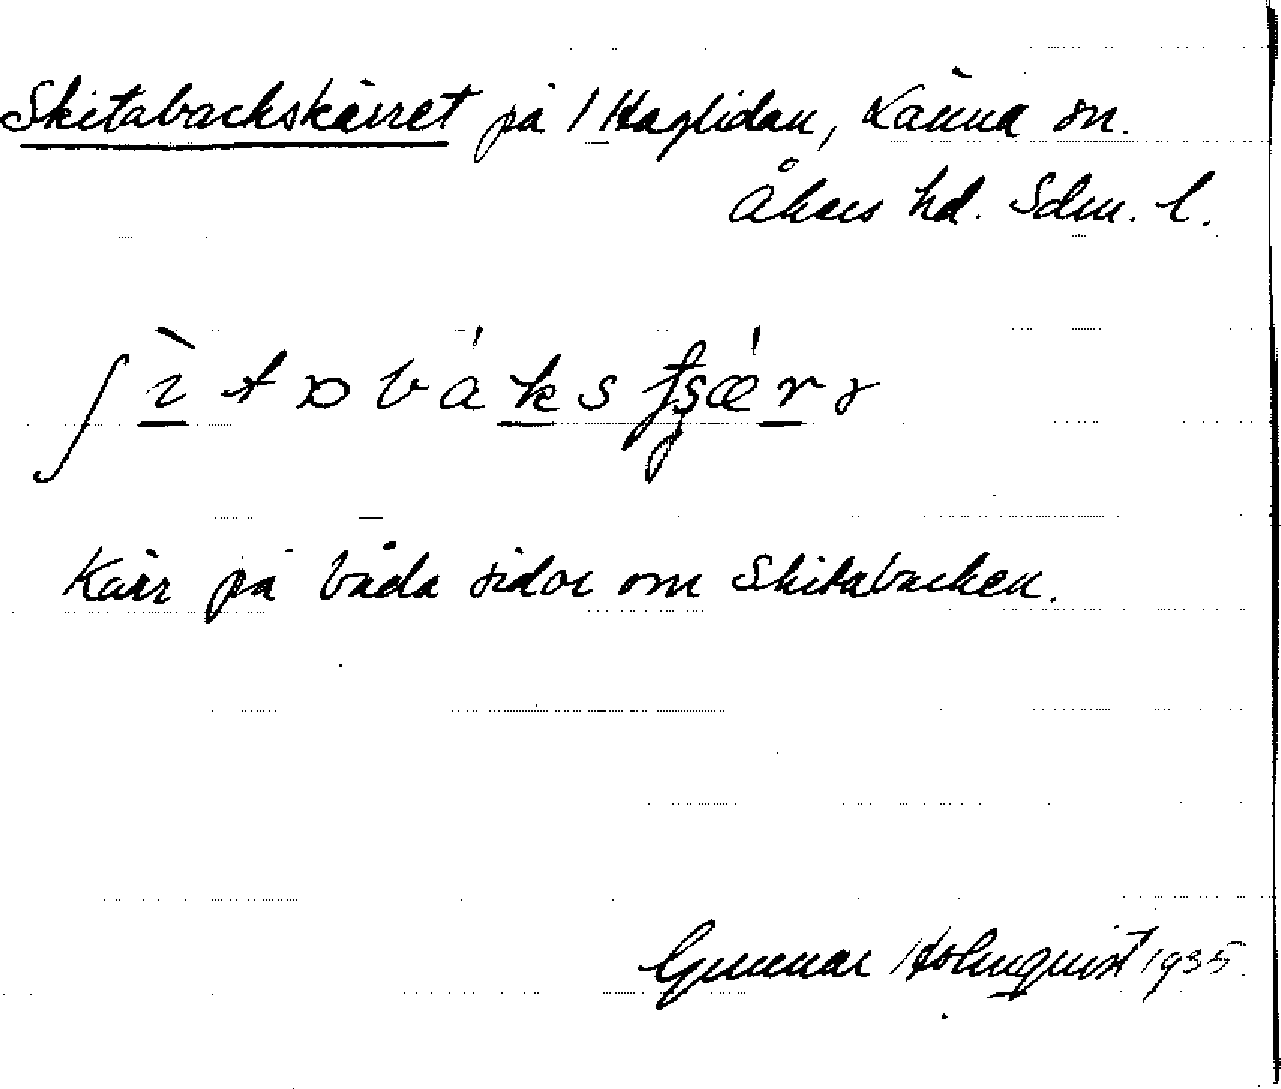 Skitabackskärret på Haglidan, Länna sn.
Åkers hd. Sdm. l.
ʃ ì t ɒ b á k s ʈʂ æ ́ r ɤ
Kärr på båda sidor om Skitabacken.
Gunnar Holmquist 1935.